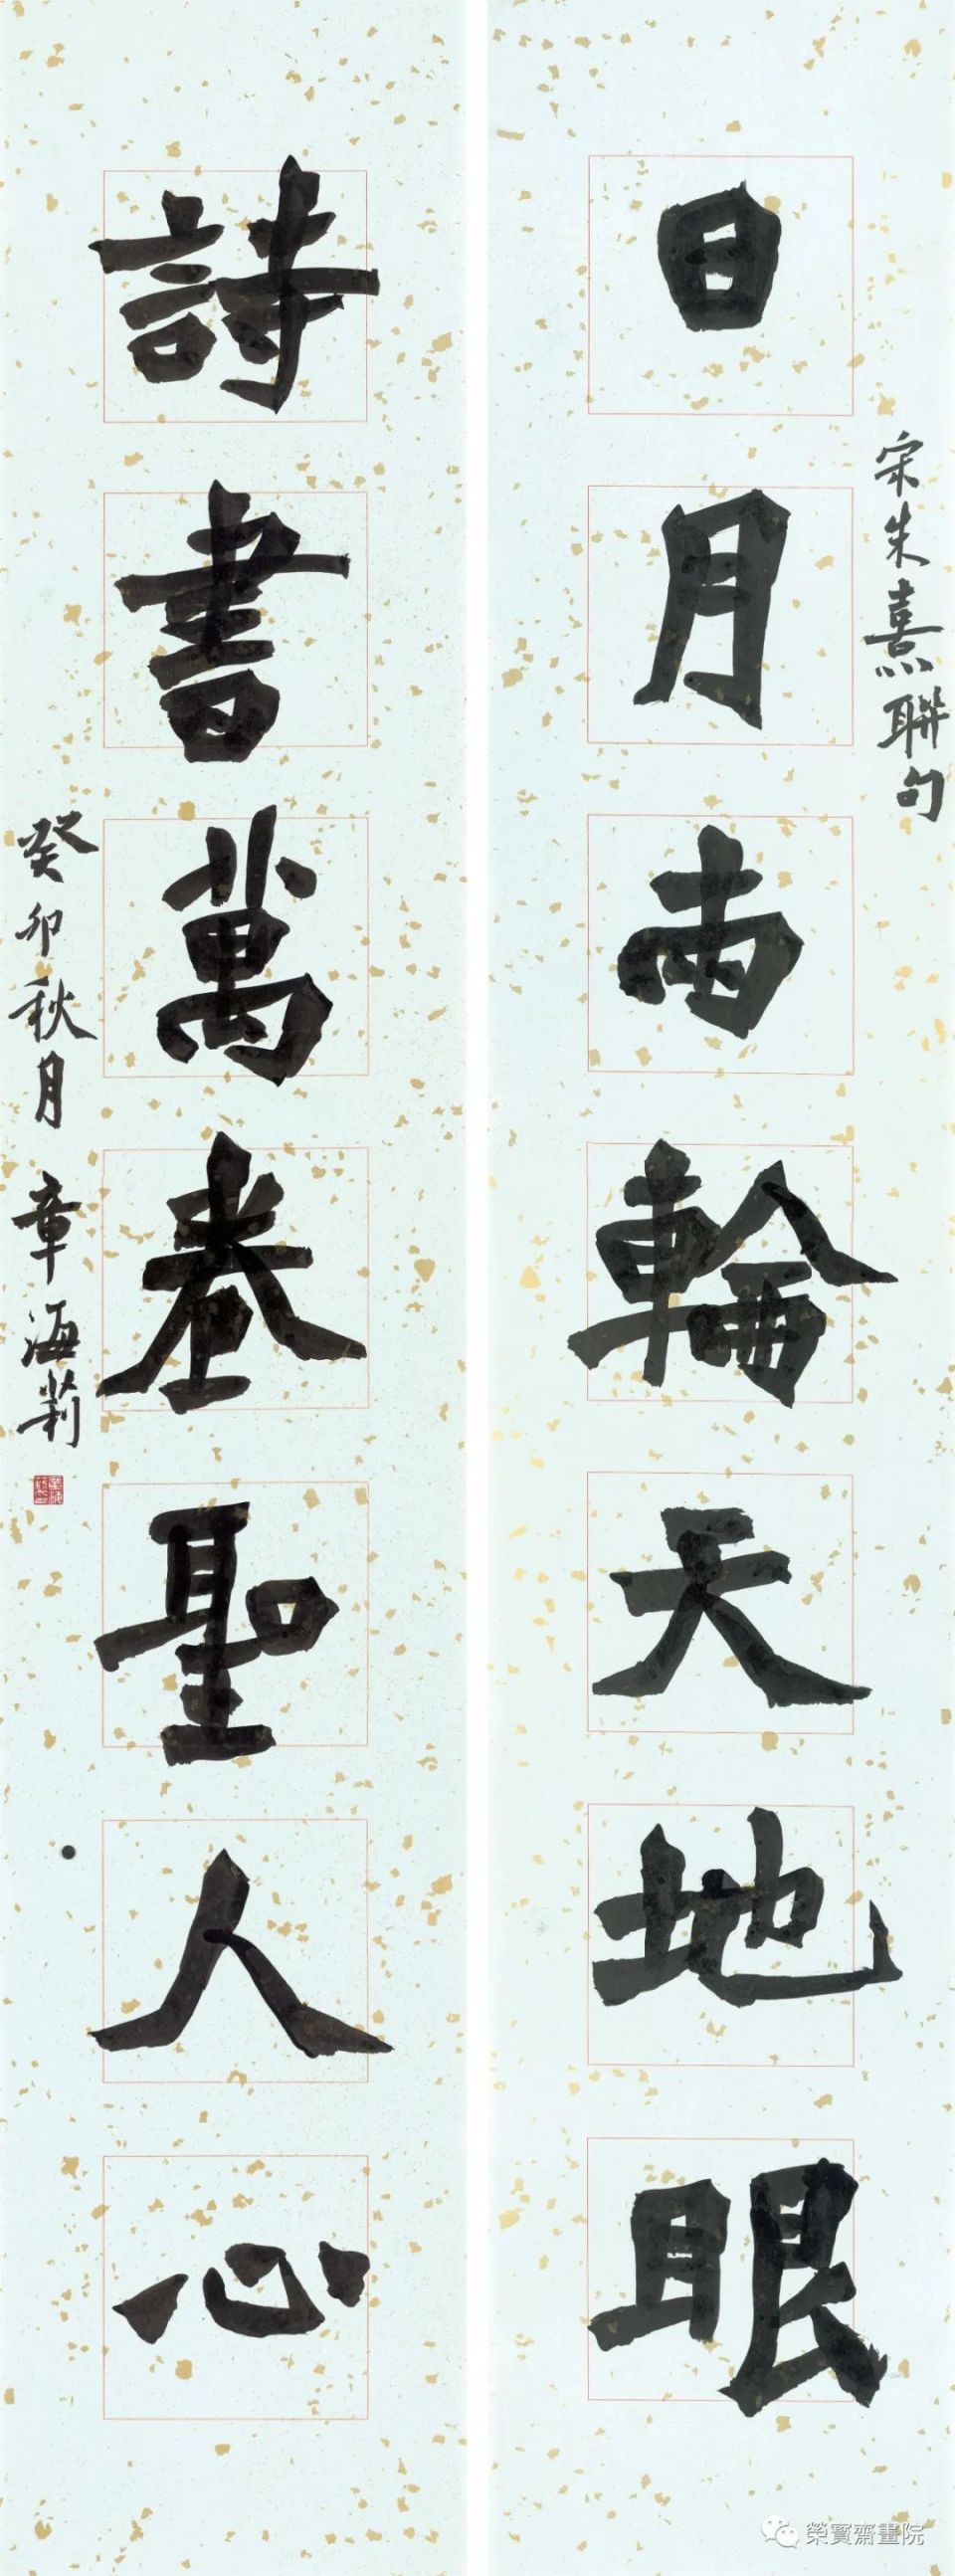 宋朱熹聯句
日月兩輪天地眼
詩書萬卷聖人心
癸卯秋月 章海莉
榮寶齋畫院